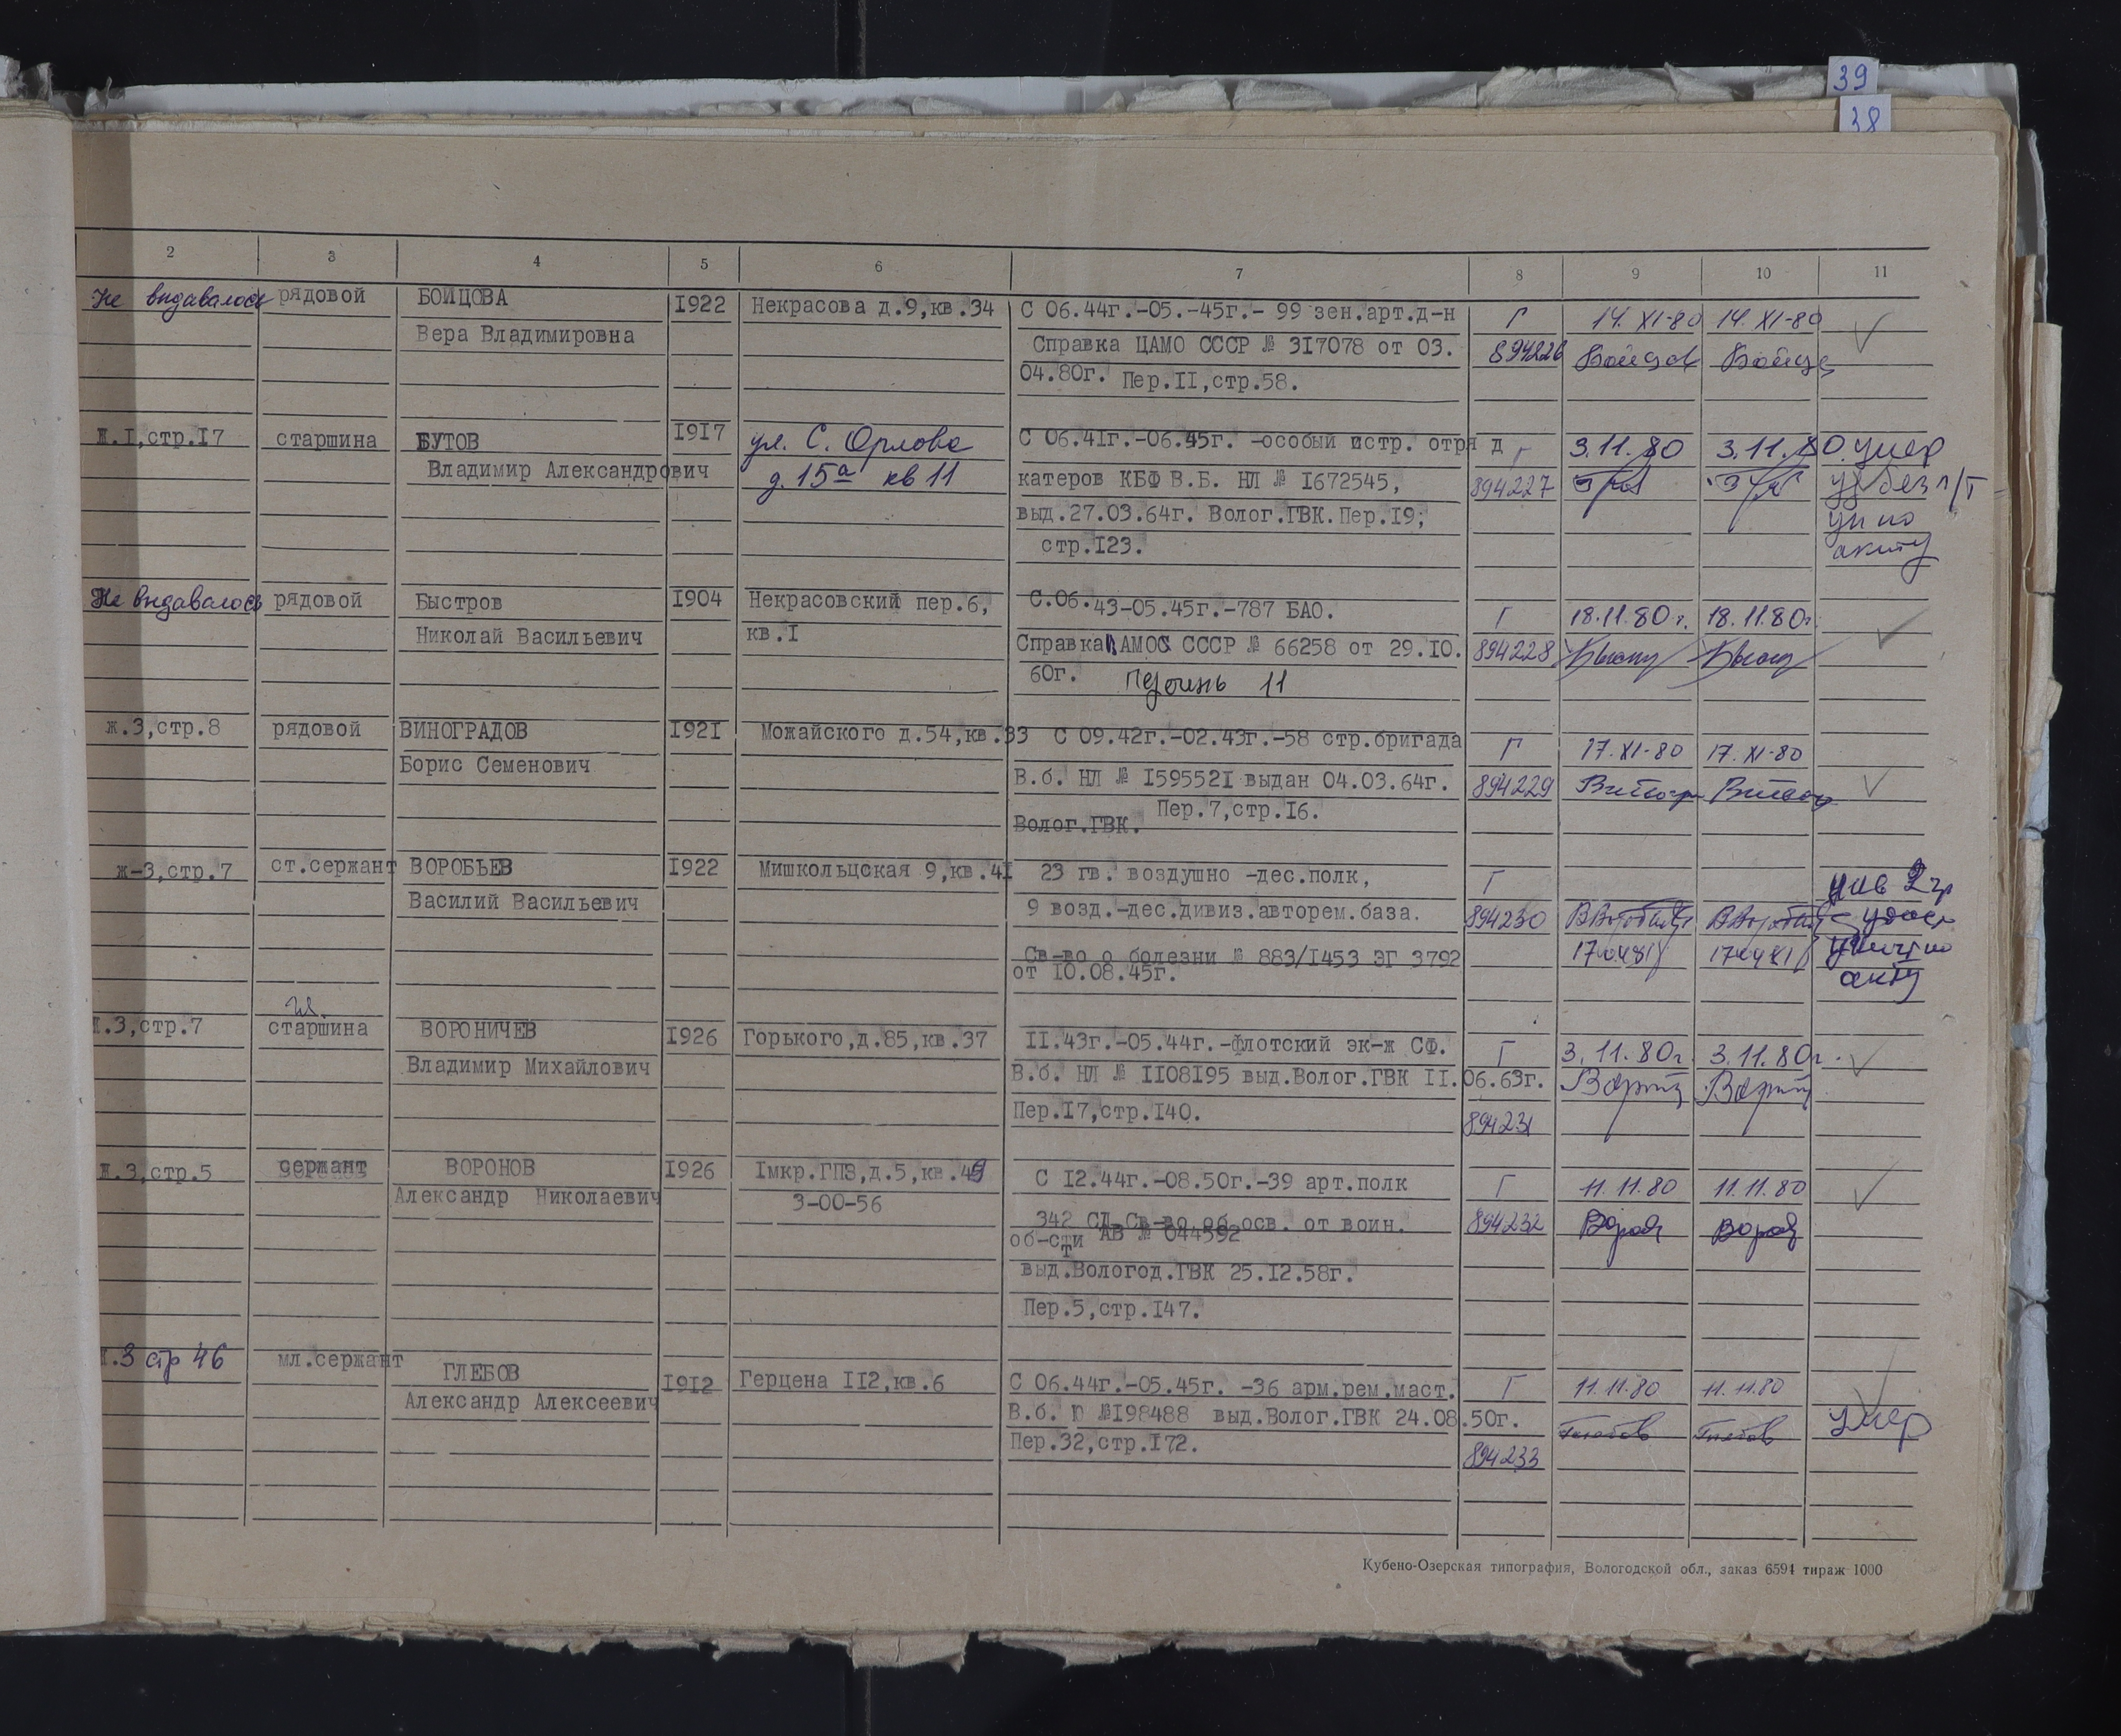 39
38
2 3 4 5 6 7 8 9 10 11
Не выдавалось рядовой БОЙЦОВА I922 Некрасова д.9,кв.34 С 06.44г.-05.-45г.- 99 зен.арт.д-н Г 14.XI-80 14.XI-80
Вера Владимировна Справка ЦАМО СССР № 3I7078 от 03. 894226
04.80г. Пер.II,стр.58.
Ж.I,стр.I7 старшина БУТОВ I9I7 ул. С. Орлова С 06.4Iг.-06.45г. -особый истр. отря д Г 3.11.80 3.11.80 умер
Владимир Александрович д.15а кв 11 катеров КБФ В.Б. НЛ № I672545, 894227 уд без п/т
выд.27.03.64г. Волог.ГВК.Пер.I9; ун по
стр.I23. акту
Не выдавалось рядовой Быстров I904 Некрасовский пер.6, С.06.43-05.45г.-787 БАО. Г 18.11.80г. 18.11.80г.
Николай Васильевич кв.I Справка АМОС СССР № 66258 от 29.I0. 894228
60г. 11
ж.3,стр.8 рядовой ВИНОГРАДОВ I92I Можайского д.54,кв.33 С 09.42г.-02.43г.-58 стр.бригада Г 17.XI-80 17.XI-80
Борис Семенович В.б. НЛ № I59552I выдан 04.03.64г. 894229
Пер.7,стр.I6.
Волог.ГВК.
ж-3,стр.7 ст.сержант ВОРОБЬЕВ I922 Мишкольцская 9,кв.4I 23 гв. воздушно -дес.полк, Г инв 2 гр
Василий Васильевич 9 возд.-дес.дивиз.авторем.база. 894230 удост
Св-во о болезни № 883/I453 ЭГ 3792 170481 170481
от I0.08.45г. акту
Ж.3,стр.7 гл. старшина ВОРОНИЧЕВ I926 Горького,д.85,кв.37 II.43г.-05.44г.-флотский эк-ж СФ. Г 3.11.80г. 3.11.80г.
Владимир Михайлович В.б. НЛ № II08I95 выд.Волог.ГВК II.06.63г.
Пер.I7,стр.I40. 894231
Ж.3,стр.5 сержант ВОРОНОВ I926 Iмкр.ГПЗ,д.5,кв.49 С I2.44г.-08.50г.-39 арт.полк Г 11.11.80 11.11.80
Александр Николаевич 3-00-56 342 СД.Св-во об осв. от воин. 894232
об-сти АВ № 044592
выд.Вологод.ГВК 25.I2.58г.
Пер.5,стр.I47.
Ж.3 стр 46 мл.сержант ГЛЕБОВ I9I2 Герцена II2,кв.6 С 06.44г.-05.45г. -36 арм.рем.маст. Г 11.11.80 11.11.80
Александр Алексеевич В.б. Ю №I98488 выд.Волог.ГВК 24.08.50г. Глебов Глебов умер
Пер.32,стр.I72. 894233
Кубено-Озерская типография, Вологодской обл., заказ 6591 тираж 1000